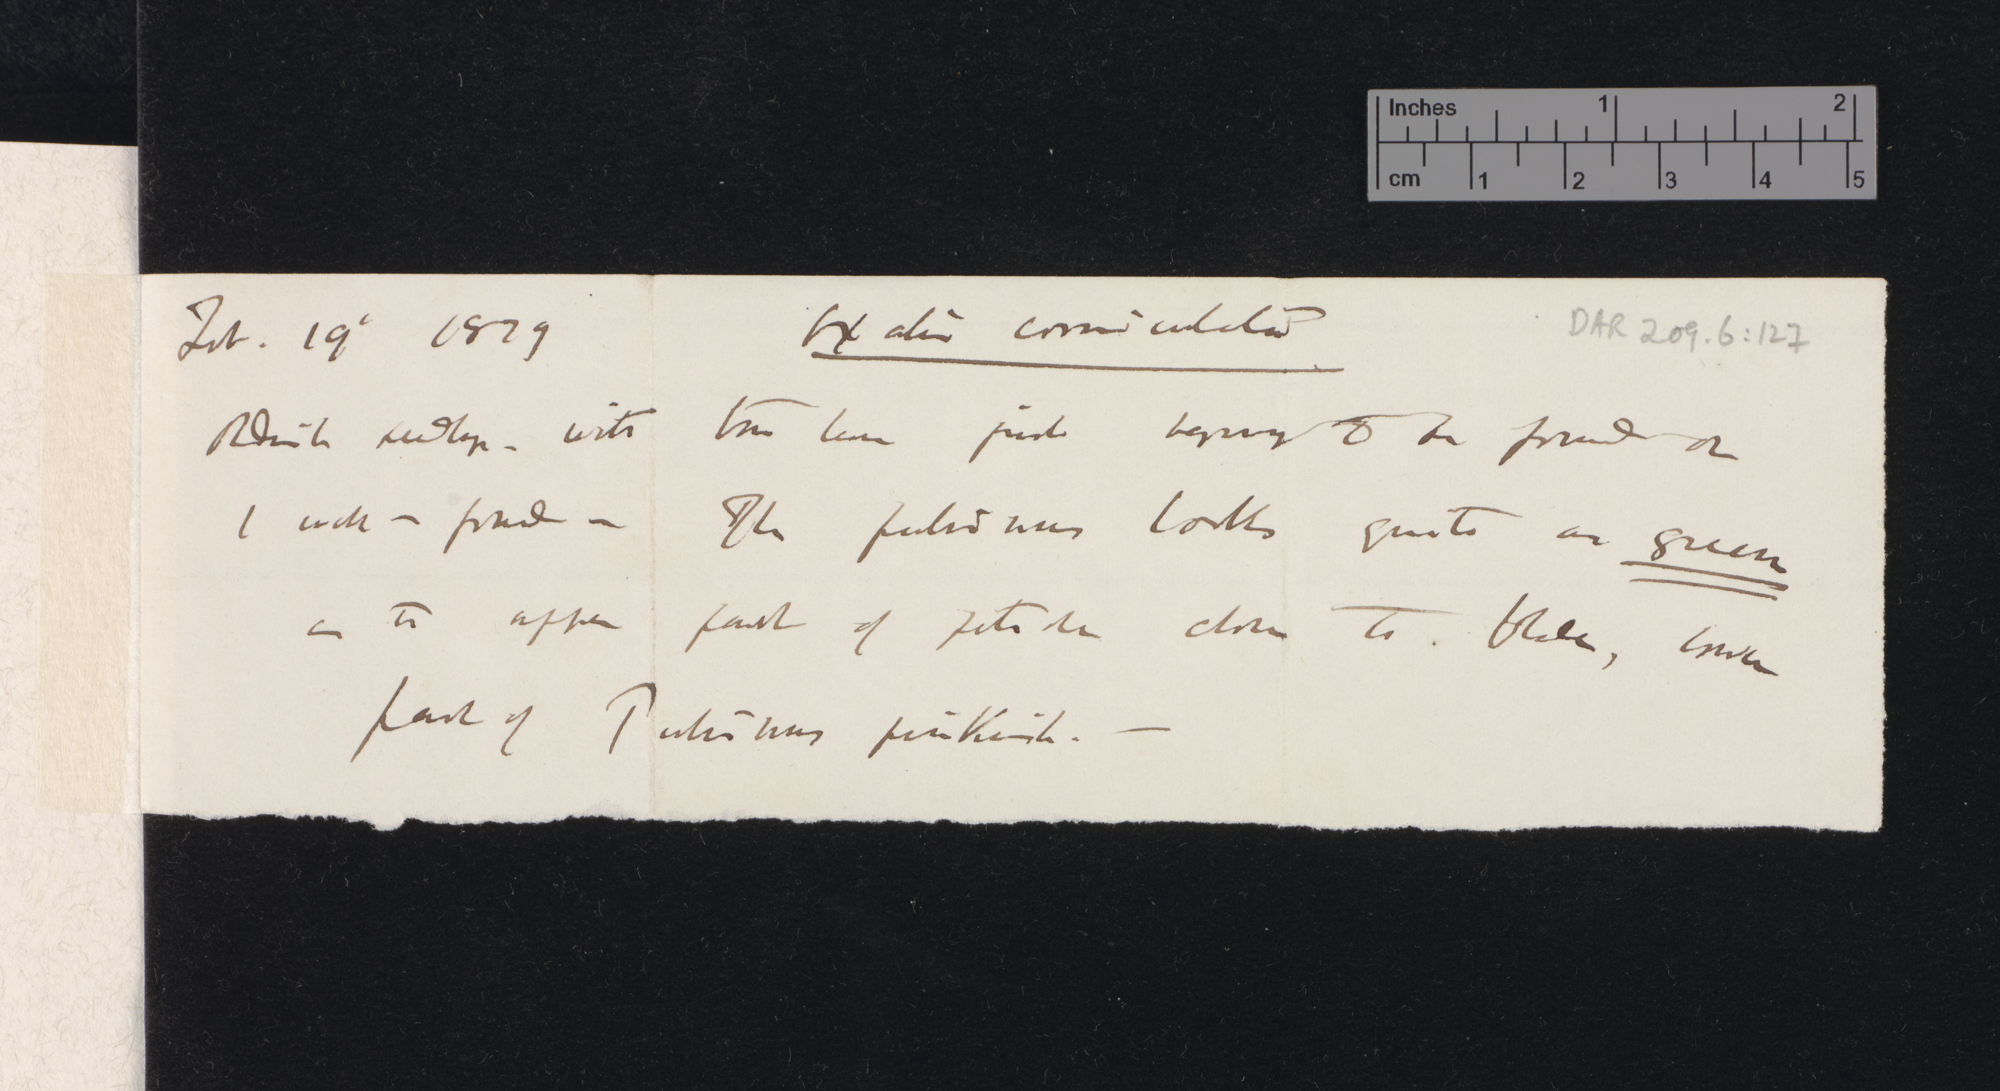 Inches 1 2
cm 1 2 3 4 5
Feb. 19' 1879 Oxalis corniculata DAR 209.6:127
Reddish seedlgs. with true leaves just begng to be formed or
1 with — formed — The pulvinus looks quite as green
as the upper part of petiole close to blade, lower
part of Pulvinus pinkish. —